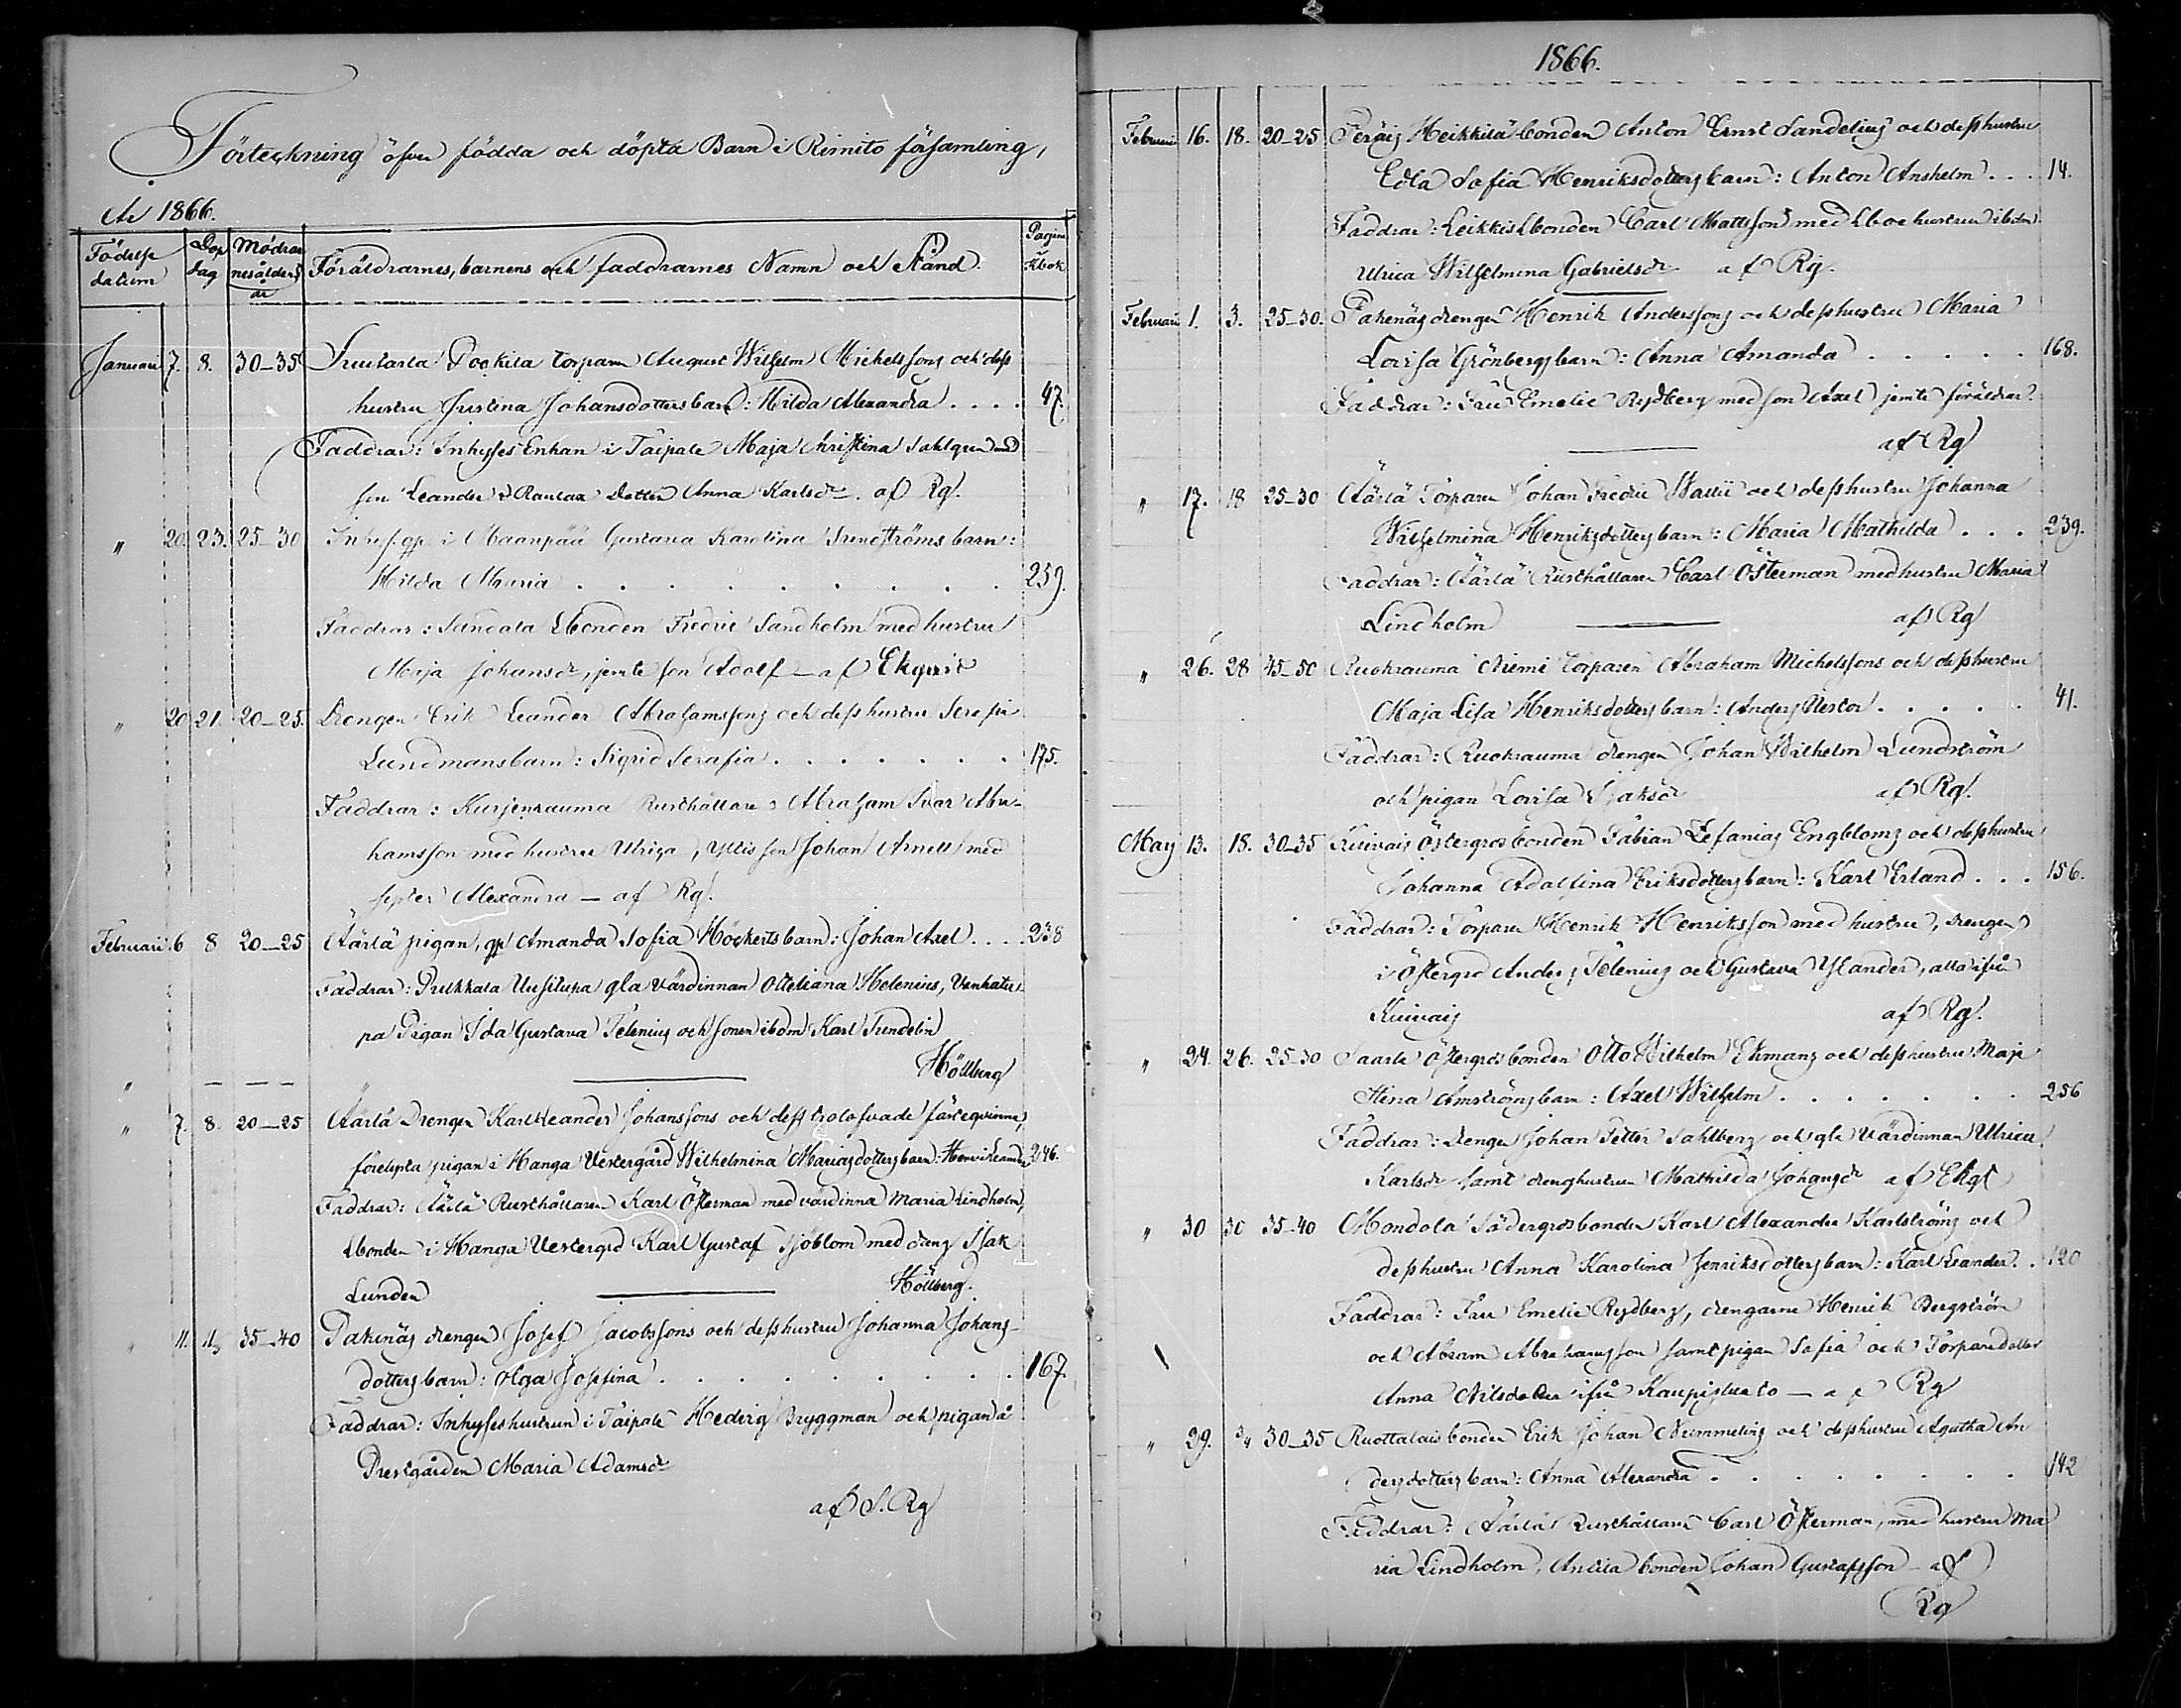 Förteckning öfver födda och döpta Barn i Rimito församling,
År 1866.
Födelse datum
Dop dag
Mödrarnes ålder år
Föräldrarnes, barnens och faddrarnes Namn och Stånd.
Pagina Kbok
Januari 7. 8. 30-35 Torparn August Wilhelm Michelssons och dess
hustru Justina Johansdotters barn: Hilda Alexandra .... 47.
Faddrar: Inhyses Enkan i Taipale Maja Christina Sahlgren med
son Leander Rautaa Dotter Anna Karlsdr. af Rg.
" 20. 23. 25-30 i Maanpää Gustava Karolina Barn:
Hilda Maria . . . . . . . . 259.
Faddrar: Sandala Lbonden Fredric Sandholm med hustru
Maja Johansdr, jemte son Adolf - af Ekqvist
" 20 21. 20-25. Drengen Erik Leander Abrahamssons och dess hustru
Lundmans barn: Sigrid Serafia . . . . . . 175.
Faddrar: Kurjenrauma Rusthållare Abraham Ivar Abra-
hamsson med hustru Ulrica, Yllis son Johan Arnell med
syster Alexandra - af Rg.
Februari 6 8 20-25 Äärlä pigan, qp Amanda Sofia Höckerts barn: Johan Axel .... 238
Faddrar: Prukkala Uusitupa gla värdinnan Otteliana Helenius, Vanhatu-
pa Pigan Ida Gustava Telenius och sonen ibdm Karl Sundelin
Höllberg
" - - - - "
" 7. 8. 20-25 Äärlä Drengen Karl Leander Johanssons och dess trolofvade fästeqvinna,
pigan i Hanga Vestergård Wilhelmina Mariasdotters barn: Henrik Leander 246.
Faddrar: Äärlä Rusthållaren Karl Österman med värdinna Maria Lindholm,
Lbonden i Hanga Vestergrd Karl Gustaf Sjöblom med dreng Isak
Lunden Höllberg.
" 11. 35-40 Pakinäs drengen Josef Jacobssons och dess hustru Johanna Johans-
dotters barn: Olga Josefina . . . . . . . . 167.
Faddrar: Inhyses hustrun i Taipale Hedvig Bryggman och pigan å
Prestgården Maria Adamsdr
af S. Rg
1866.
Februari 16. 18. 20-25 Heikkilä bonden Anton Ernst Sandelius och dess hustru
Edla Sofia Henriksdotters barn: Anton Anshelm ... 14.
Faddrar: Leikkis Lbonden Carl Mattsson med hustru ibdm
Ulrica Wilhelmina Gabrielsdr af Rg.
Februari 1. 3. 25-30. Pakenäs drengen Henrik Anderssons och dess hustru Maria
Lovisa Grönbergs barn: Anna Amanda . . . . . 168.
Faddrar: Fru Emelie Rydberg med son Axel jemte föräldrar
af Rg
" 17. 18 25-30 Äärlä Torparen Johan Fredric och dess hustru Johanna
Wilhelmina Henriksdotters barn: Maria Mathilda ... 239.
Faddrar: Äärlä Rusthållaren Carl Österman med hustru Maria
Lindholm af Rg
" 26. 28 45-50 Ruokrauma Niemi Torparen Abraham Michelssons och dess hustru
Maja Lisa Henriksdotters barn: Anders Nestor . . . . 41.
Faddrar: Ruokrauma drengen Johan Wilhelm Lundström
och pigan Lovisa Isaksdr af Rg.
May 13. 18. 30-35 Kuivais Östergrds bonden Fabian Zefanias Engbloms och dess hustru
Johanna Adolfina Eriksdotters barn: Karl Erland ... 156.
Faddrar: Torparen Henrik Henriksson med hustru, drengen
i Östergrd Anders Telenius och Gustava Ylander, alla ifrån
Kuivais af Rg.
" 24. 26. 25-30 Saarla Östergrds bonden Otto Wilhelm Ekmans och dess hustru Maja
Stina barn: Axel Wilhelm . . . . . . . 256
Faddrar: drengen Johan Petter Sahlberg och gla värdinnan Ulrica
Karlsdr samt drenghustrun Mathilda Johansdr af Ekqt
" 30 30 35-40 Mondola Södergrds bonden Karl Alexander Karlströms och
dess hustru Anna Karolina Henriksdotters barn: Karl Leander . . 120
Faddrar: Fru Emelie Rydberg, drengarne Henrik Bergström
och Abram Abrahamsson samt pigan Sofia och Torparedotter
Anna Nilsdotter ifrån Kaupisluoto - af Rg
" 29. 30-35 Ruottalais bonden Erik Johan Nummelins och dess hustru Agatha An
dersdotters barn: Anna Alexandra . . . . . . . 142
Faddrar: Äärlä Rusthållaren Carl Österman, med hustru Ma
ria Lindholm, Anttila bonden Johan Gustafsson - af
Rg